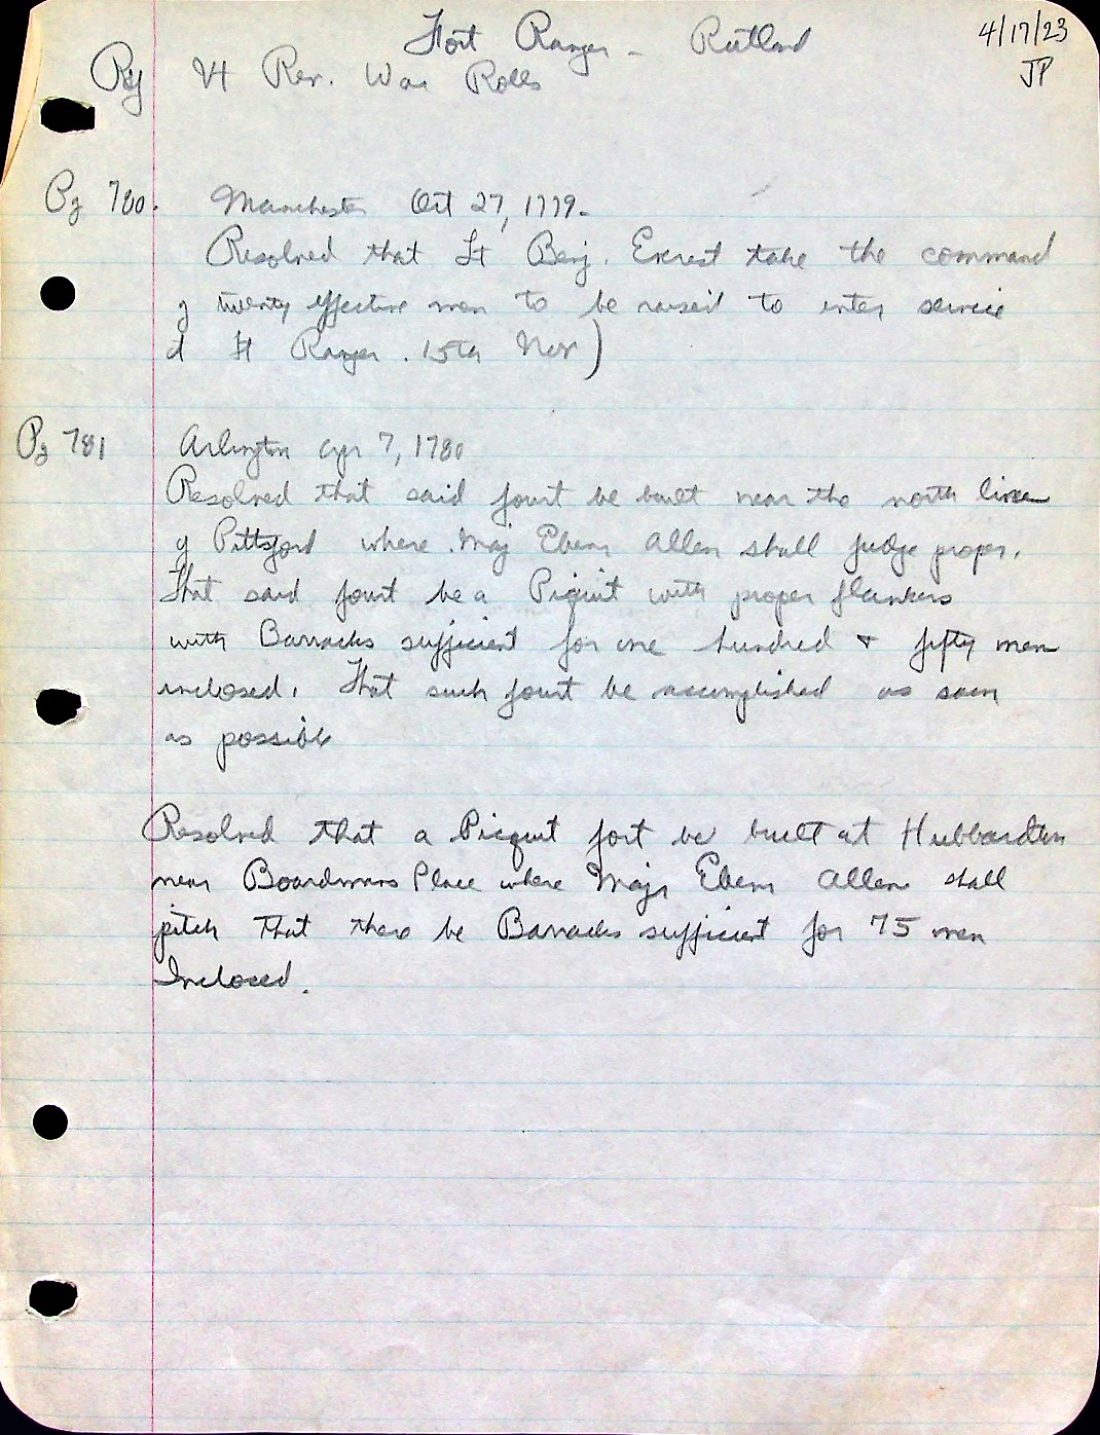 Fort Ranger - Rutland
4/17/23
JP
Ref Vt Rev. War Rolls
Pg 780. Manchester Oct 27, 1779.
Resolved that Lt Benj. Everest take the command
of twenty effective men to be raised to enter service
at Ft Ranger. 15th Nov)
Pg 781 Arlington Apr 7, 1780
Resolved that said fourt be built near the north line
of Pittsford where Maj Eben Allen shall judge proper.
That said fourt be a Piquit with proper flankers
with Barracks sufficient for one hundred & fifty men
inclosed. That such fourt be accomplished as soon
as possible
Resolved that a Picquit fort be built at Hubbardton
near Boardmans Place where Majr Eben Allen shall
pitch that there be Barracks sufficient for 75 men
Inclosed.